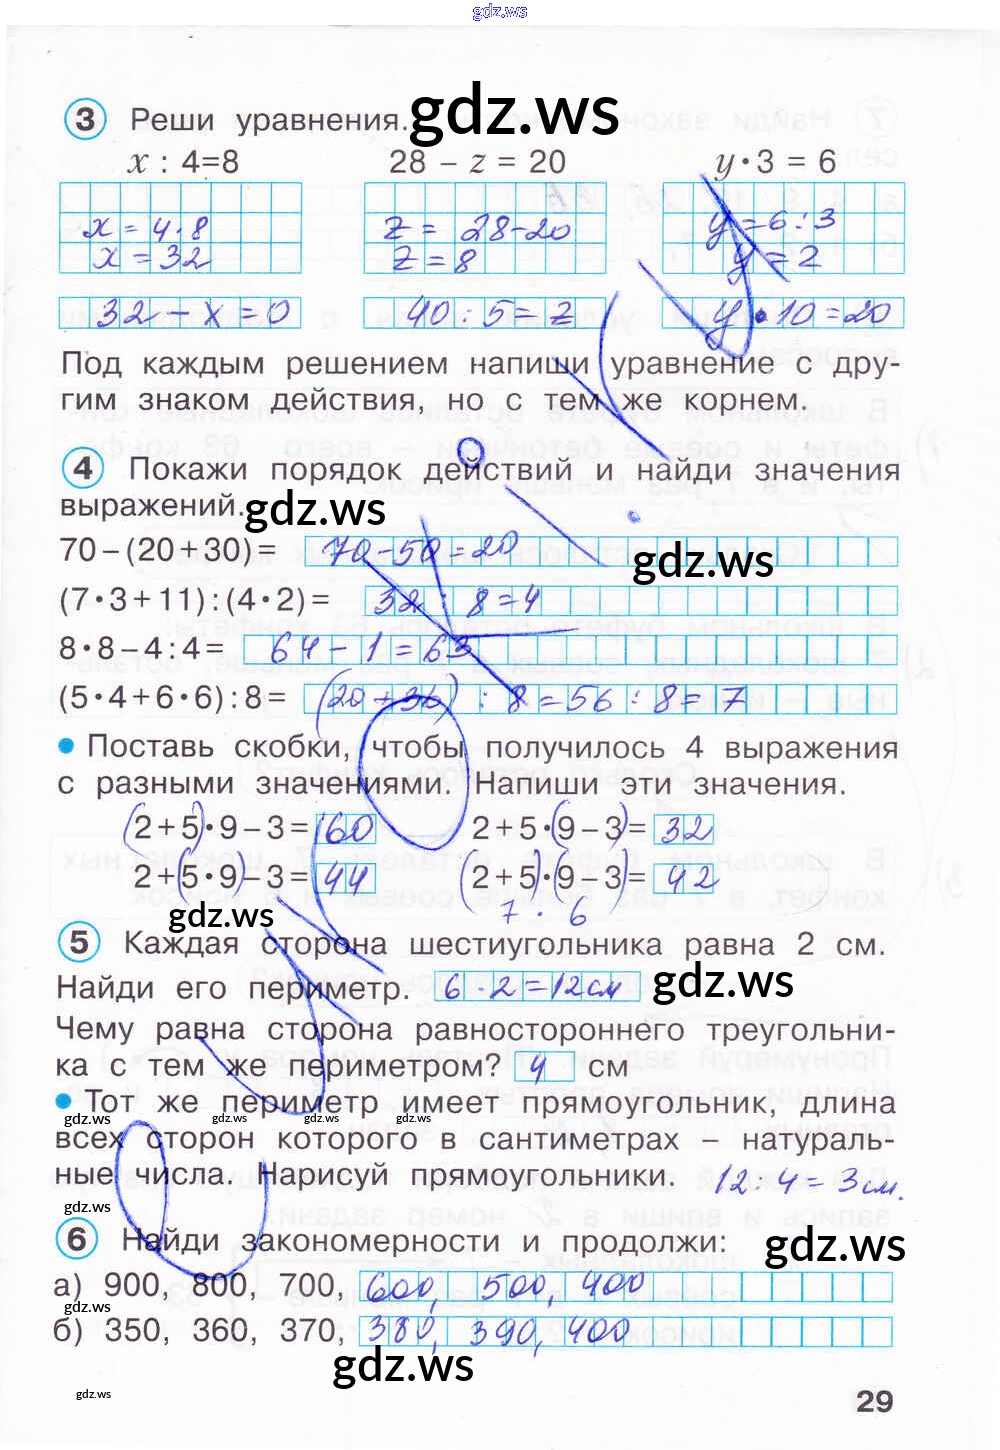 gdz.ws
3 Реши уравнения. gdz.ws
x : 4=8 28 – z = 20 y·3 = 6
x = 4·8 z = 28-20 y = 6:3
x = 32 z = 8 y = 2
32 – x = 0 40 : 5 = z y · 10 = 20
Под каждым решением напиши уравнение с дру-
гим знаком действия, но с тем же корнем.
4 Покажи порядок действий и найди значения
выражений. gdz.ws
70–(20+30)= 70-50=20
gdz.ws
(7·3+11):(4·2)= 32 : 8=4
8·8–4:4= 64 – 1 = 63
(5·4+6·6):8= (20+36) : 8=56 : 8=7
• Поставь скобки, чтобы получилось 4 выражения
с разными значениями. Напиши эти значения.
(2+5)·9–3= 60 2+5·(9–3)= 32
2+(5·9)–3= 44 (2+5)·(9–3)= 42
gdz.ws 7 · 6
5 Каждая сторона шестиугольника равна 2 см.
Найди его периметр. 6·2=12см gdz.ws
Чему равна сторона равностороннего треугольни-
ка с тем же периметром? 4 см
• Тот же периметр имеет прямоугольник, длина
gdz.ws gdz.ws gdz.ws gdz.ws gdz.ws
всех сторон которого в сантиметрах – натураль-
ные числа. Нарисуй прямоугольники. 12:4=3см.
gdz.ws
6 Найди закономерности и продолжи: gdz.ws
а) 900, 800, 700, 600, 500, 400
gdz.ws
б) 350, 360, 370, 380, 390, 400
gdz.ws
gdz.ws
29